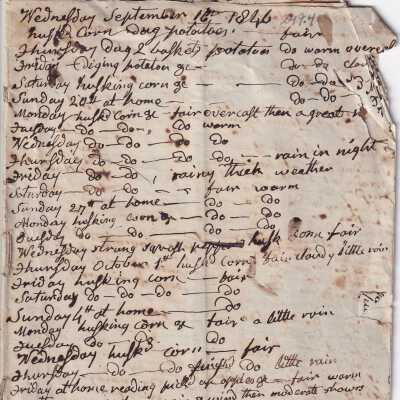 Wednesday September 16th 1846
husk'd Corn Day potatoes. fair
Thursday Day 2 basket potatoes do warm overcast
Friday Diging potatoes &c do do
Saturday husking corn &c do do
Sunday 20th at home do do
Monday husk'd corn &c fair overcast then a great
Tuesday do do do warm
Wednesday do do do do
Thursday do do do do rain in night
Friday do do rainy thick weather
Saturday do do fair warm
Sunday 27th at home do do
Monday husking corn &c do do
Tuesday do do do do
Wednesday strung husk some fair
Thursday October 1st husk'd corn fair cloudy little rain
Friday husking corn fair
Saturday do do do do
Sunday 4th at home do
Monday husking corn &c fair a little rain
Tuesday do do do
Wednesday husk'd corn fair
Thursday do do little rain
Friday at home reading pick'd up apples &c fair warm
then moderate showers